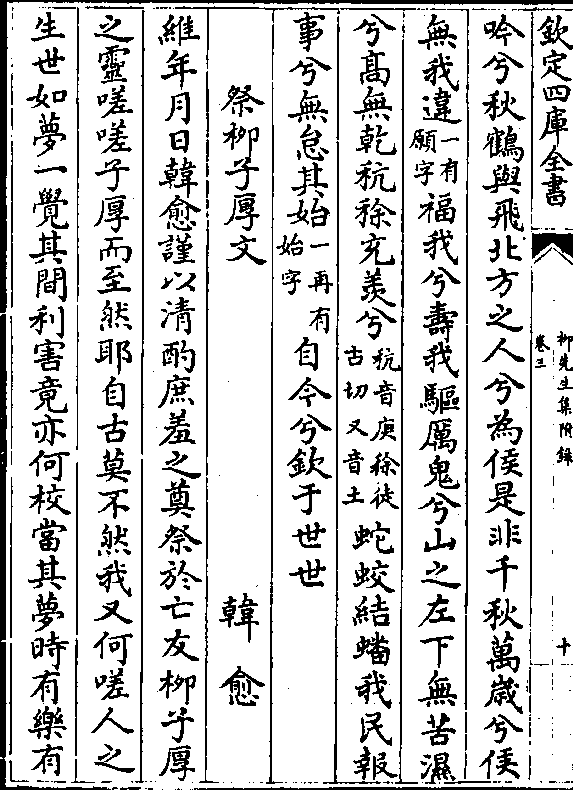 欽定四庫全書
柳先生集附錄
卷三
十
吟兮秋鶴與飛北方之人兮為侯是非千秋萬歲兮侯
無我違一有願字福我兮壽我驅厲鬼兮山之左下無苦濕
兮髙無乾秔稌充羨兮秔音庚稌徒古切又音土蛇蛟結蟠我民報
事兮無怠其始一再有始字自今兮欽于世世
祭柳子厚文 韓愈
維年月日韓愈謹以清酌庶羞之奠祭於亡友柳子厚
之靈嗟嗟子厚而至然耶自古莫不然我又何嗟人之
生世如夢一覺其間利害竟亦何校當其夢時有樂有